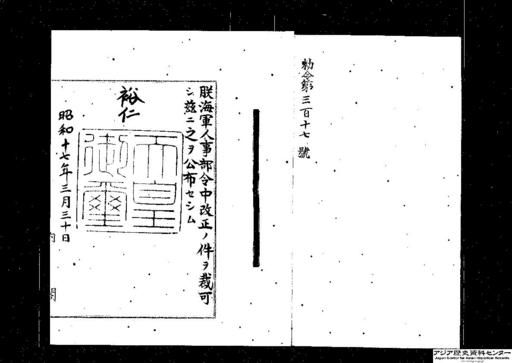 勅令第三百十七號
朕海軍人事部令中改正ノ件ヲ裁可
シ茲ニ之ヲ公布セシム
裕仁
天皇
御璽
昭和十七年三月三十日
内閣
アジア歴史資料センター
Japan Center for Asian Historical Records